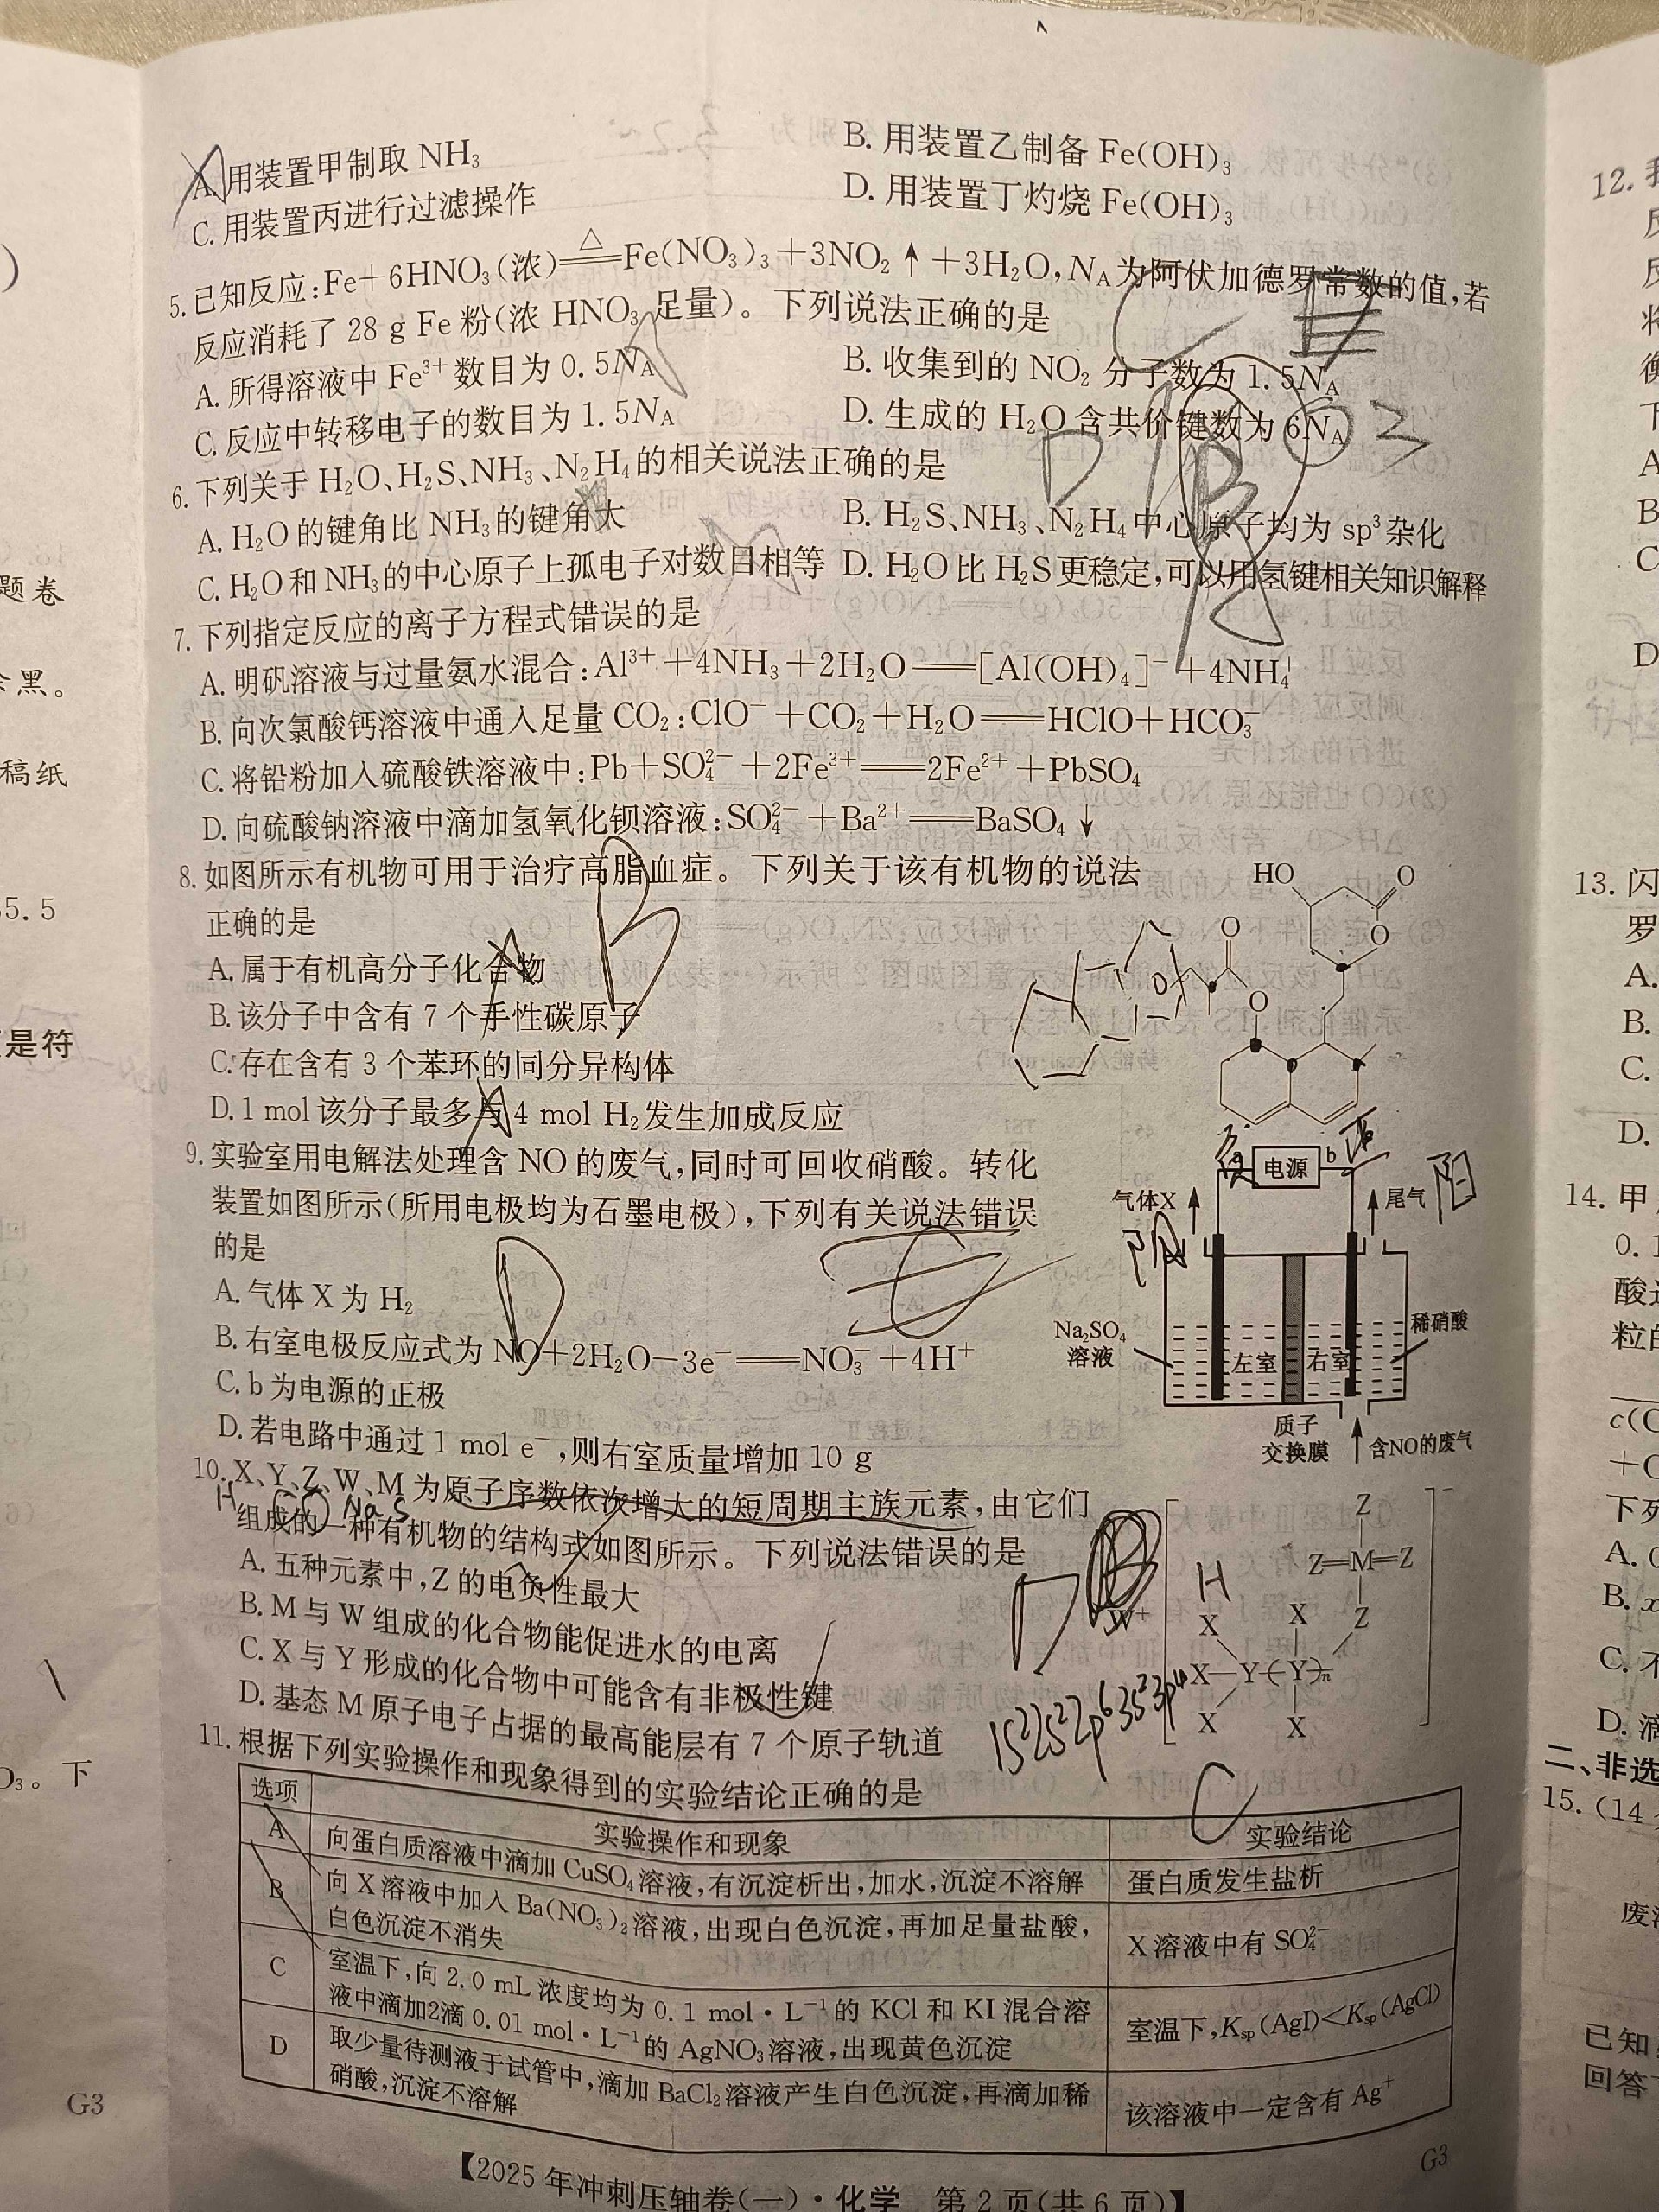 A. 用装置甲制取 NH₃
B. 用装置乙制备 Fe(OH)₃
C. 用装置丙进行过滤操作
D. 用装置丁灼烧 Fe(OH)₃
5. 已知反应:Fe+6HNO₃(浓)══△══Fe(NO₃)₃+3NO₂↑+3H₂O,N_A为阿伏加德罗常数的值,若
反应消耗了 28 g Fe 粉(浓 HNO₃ 足量)。下列说法正确的是
A. 所得溶液中 Fe³⁺数目为 0.5N_A
B. 收集到的 NO₂ 分子数为 1.5N_A
C. 反应中转移电子的数目为 1.5N_A
D. 生成的 H₂O 含共价键数为 6N_A
6. 下列关于 H₂O、H₂S、NH₃、N₂H₄的相关说法正确的是
A. H₂O 的键角比 NH₃的键角大
B. H₂S、NH₃、N₂H₄中心原子均为 sp³杂化
C. H₂O 和 NH₃的中心原子上孤电子对数目相等
D. H₂O 比 H₂S 更稳定,可以用氢键相关知识解释
7. 下列指定反应的离子方程式错误的是
A. 明矾溶液与过量氨水混合:Al³⁺+4NH₃+2H₂O══[Al(OH)₄]⁻+4NH₄⁺
B. 向次氯酸钙溶液中通入足量 CO₂:ClO⁻+CO₂+H₂O══HClO+HCO₃⁻
C. 将铅粉加入硫酸铁溶液中:Pb+SO₄²⁻+2Fe³⁺══2Fe²⁺+PbSO₄
D. 向硫酸钠溶液中滴加氢氧化钡溶液:SO₄²⁻+Ba²⁺══BaSO₄↓
8. 如图所示有机物可用于治疗高脂血症。下列关于该有机物的说法
正确的是
A. 属于有机高分子化合物
B. 该分子中含有 7 个手性碳原子
C. 存在含有 3 个苯环的同分异构体
D. 1 mol 该分子最多与 4 mol H₂发生加成反应
HO
O
O
O
O
B
9. 实验室用电解法处理含 NO 的废气,同时可回收硝酸。转化
装置如图所示(所用电极均为石墨电极),下列有关说法错误
的是
A. 气体 X 为 H₂
B. 右室电极反应式为 NO+2H₂O−3e⁻══NO₃⁻+4H⁺
C. b 为电源的正极
D. 若电路中通过 1 mol e⁻,则右室质量增加 10 g
电源
b
正
气体X
尾气
阳
阴
Na₂SO₄
溶液
稀硝酸
左室
右室
质子
交换膜
含NO的废气
D
10. X、Y、Z、W、M 为原子序数依次增大的短周期主族元素,由它们
H C O Na S
组成的一种有机物的结构式如图所示。下列说法错误的是
A. 五种元素中,Z 的电负性最大
B. M 与 W 组成的化合物能促进水的电离
C. X 与 Y 形成的化合物中可能含有非极性键
D. 基态 M 原子电子占据的最高能层有 7 个原子轨道
Z
Z=M=Z
W⁺
H
X X Z
X—Y—(Y)ₙ
X X
D
1s²2s²2p⁶3s²3p⁴
11. 根据下列实验操作和现象得到的实验结论正确的是
C
选项 实验操作和现象 实验结论
A 向蛋白质溶液中滴加 CuSO₄溶液,有沉淀析出,加水,沉淀不溶解 蛋白质发生盐析
B 向 X 溶液中加入 Ba(NO₃)₂溶液,出现白色沉淀,再加足量盐酸,
白色沉淀不消失 X 溶液中有 SO₄²⁻
C 室温下,向 2.0 mL 浓度均为 0.1 mol·L⁻¹的 KCl 和 KI 混合溶
液中滴加2滴 0.01 mol·L⁻¹的 AgNO₃溶液,出现黄色沉淀 室温下,Kₛₚ(AgI)<Kₛₚ(AgCl)
D 取少量待测液于试管中,滴加 BaCl₂溶液产生白色沉淀,再滴加稀
硝酸,沉淀不溶解 该溶液中一定含有 Ag⁺
【2025 年冲刺压轴卷(一)·化学 第 2 页(共 6 页)】
G3
题卷
黑。
稿纸
5.5
是符
O₃。下
G3
12.
A
B
C
D
13. 闪
罗
A.
B.
C.
D.
14. 甲
0.1
粒的
c(
下列
A.
B.
C. 不
D. 滴
二、非选
15. (14
废
已知
回答